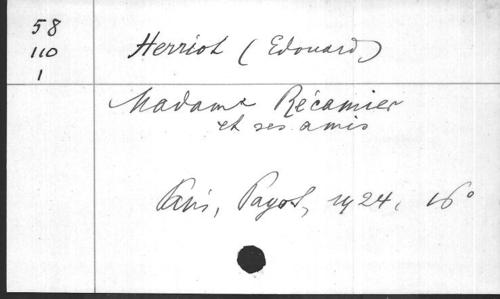 58
110
1
Herriot (Edouard)
Madame Récamier
et ses amis
Paris, Payot, 1924, 16°